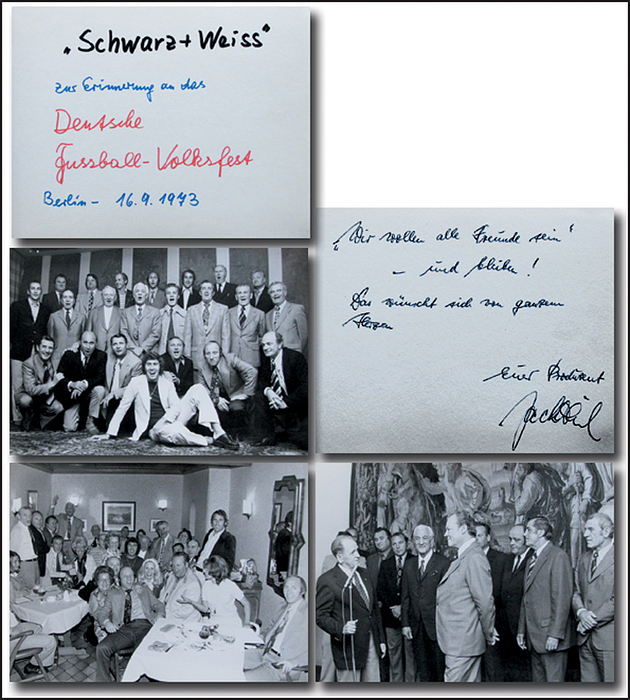 „Schwarz + Weiss"
zur Erinnerung an das
Deutsche
Fussball-Volksfest
Berlin - 16.9.1973
„Wir wollen alle Freunde sein"
- und bleiben!
Das wünscht sich von ganzem
Herzen
Euer Produzent